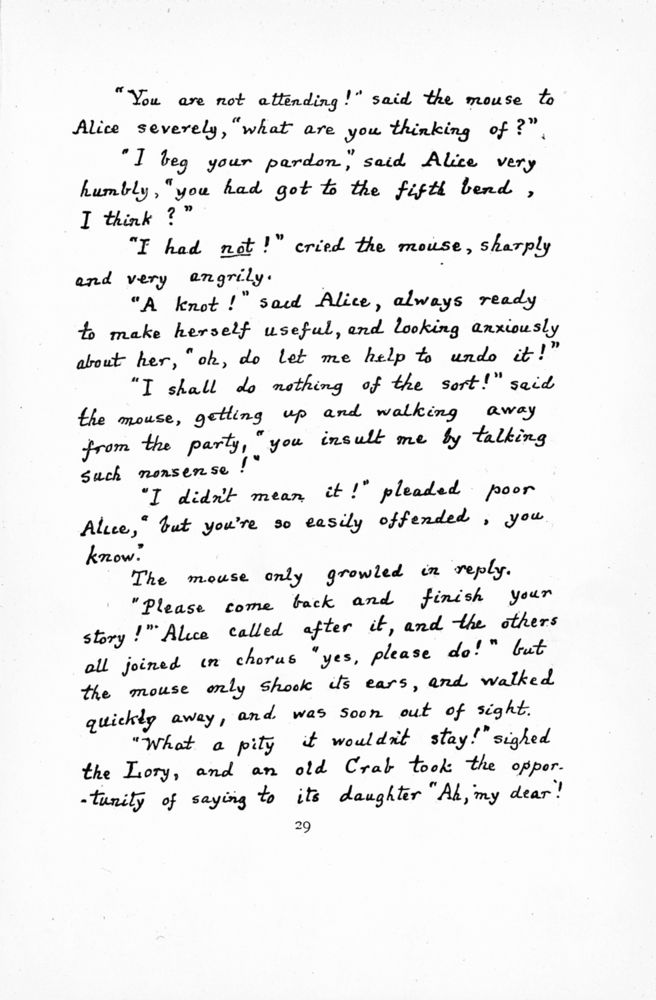 "You are not attending!" said the mouse to
Alice severely, "what are you thinking of?"
"I beg your pardon," said Alice very
humbly, "you had got to the fifth bend,
I think?"
"I had not!" cried the mouse, sharply
and very angrily.
"A knot!" said Alice, always ready
to make herself useful, and looking anxiously
about her, "oh, do let me help to undo it!"
"I shall do nothing of the sort!" said
the mouse, getting up and walking away
from the party, "you insult me by talking
such nonsense!"
"I didn't mean it!" pleaded poor
Alice, "but you're so easily offended, you
know."
The mouse only growled in reply.
"Please come back and finish your
story!" Alice called after it, and the others
all joined in chorus "yes, please do!" but
the mouse only shook its ears, and walked
quickly away, and was soon out of sight.
"What a pity it wouldn't stay!" sighed
the Lory, and an old Crab took the oppor-
-tunity of saying to its daughter "Ah, my dear!
29